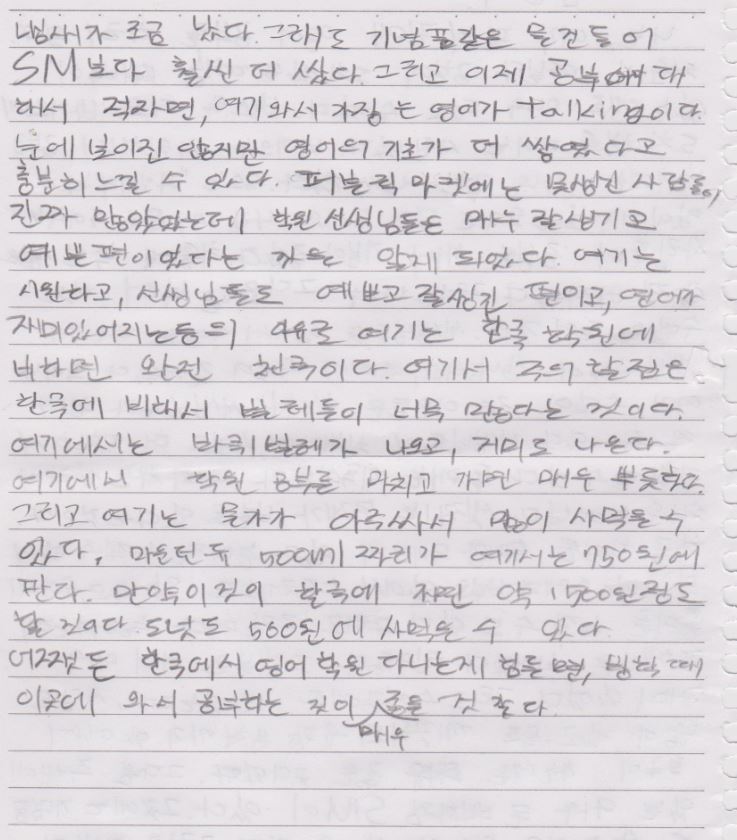 냄새가 조금 났다. 그래도 기념품같은 물건들이
SM보다 훨씬 더 쌌다. 그리고 이제 공부에 대
해서 적자면, 여기와서 가장 는 영어가 talking이다.
눈에 보이진 않지만 영어의 기초가 더 쌓였다고
충분히 느낄 수 있다. 퍼블릭 마켓에는 못생긴 사람들이
진짜 많았었는데 학원 선생님들은 매우 잘생기고
예쁜편이었다는 것을 알게 되었다. 여기는
시원하고, 선생님들도 예쁘고 잘생긴 편이고, 영어가
재미있어지는등의 이유로 여기는 한국 학원에
비하면 완전 천국이다. 여기서 주의 할점은
한국에 비해서 벌레들이 너무 많다는 것이다.
여기에서는 바퀴벌레가 나오고, 거미도 나온다.
여기에서 학원 공부를 마치고 가면 매우 뿌듯하다.
그리고 여기는 물가가 아주싸서 많이 사먹을 수
있다. 마운틴 듀 500ml 짜리가 여기서는 750원에
판다. 만약 이것이 한국에 가면 약 1500원정도
할 것이다. 도넛도 560원에 사먹을 수 있다
어쨌든 한국에서 영어 학원 다니는게 힘들면, 방학 때
이곳에 와서 공부하는 것이 좋을 것 같다.
매우